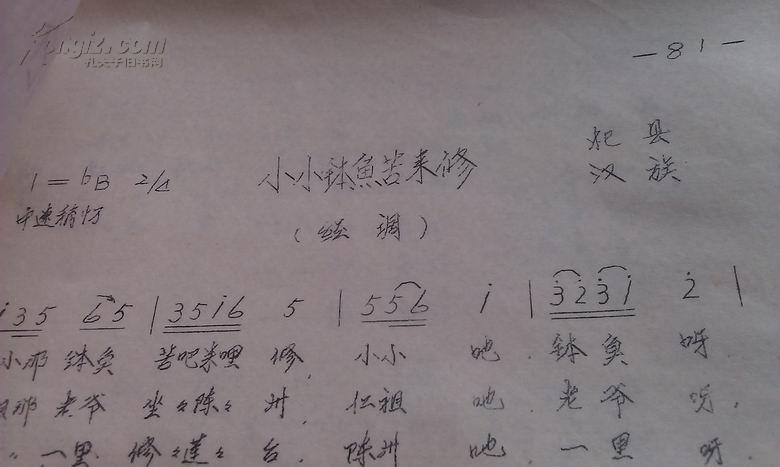 kongfz.com
孔夫子旧书网
— 81 —
小小鉢魚苦来修
杞县
汉族
1=bB 2/4
中速稍忙
(经调)
i35 65 | 35i6 5 | 556 i | 3231 2 |
小那 鉢魚 苦吧来哩 修 小小 吔 鉢魚 呀
那 老爷 坐〻陈〻 州, 仁祖 吔 老爷 呀,
〃 一里 修〻莲〻 台, 陈州 吔, 一里 呀